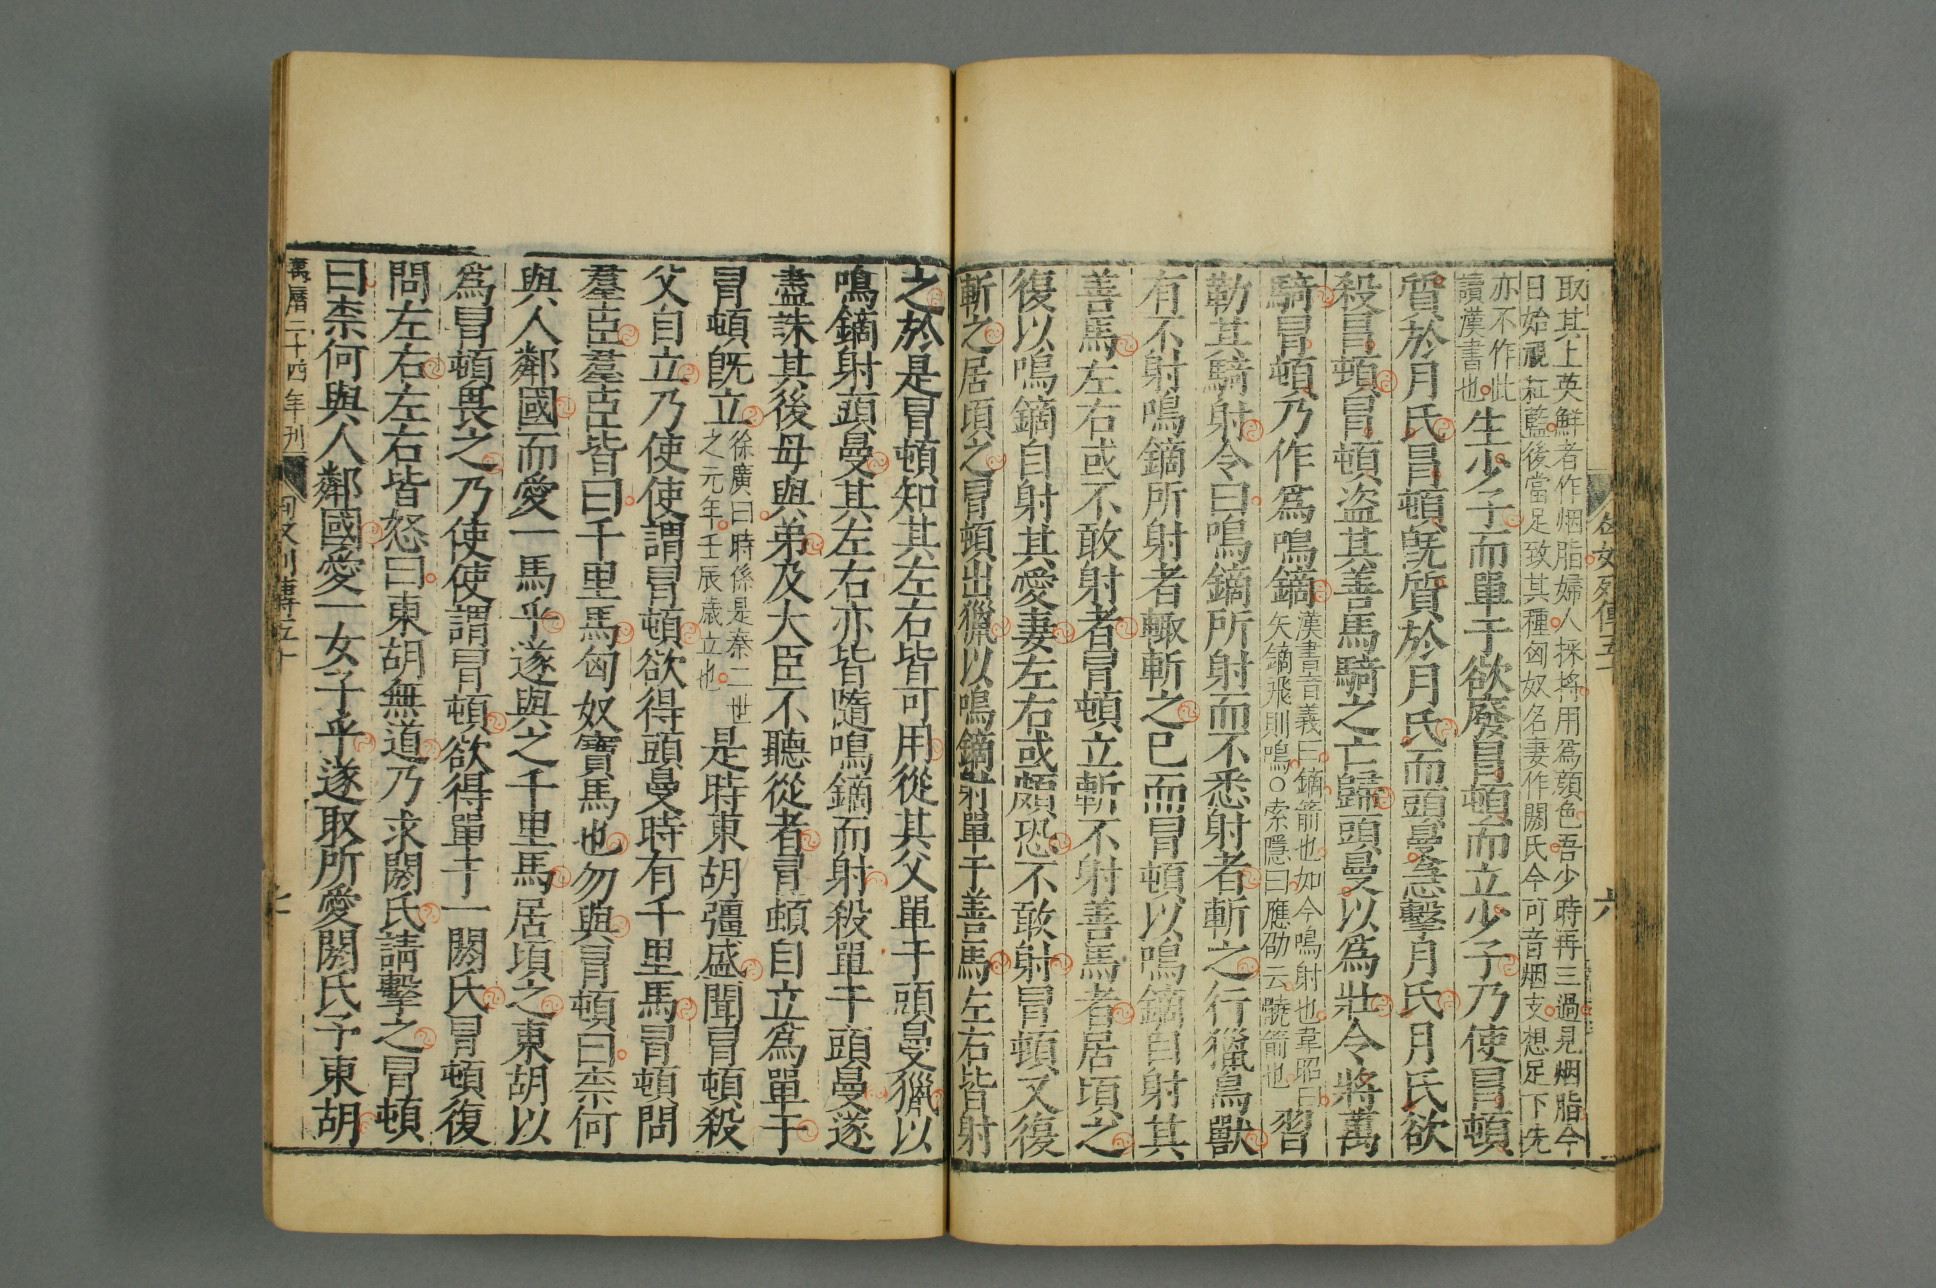 取其上英鮮者作烟脂婦人採將用爲顔色吾少時再三過見烟脂今
日始視紅藍後當足致其種匈奴名妻作閼氏今可音烟支想足下先
亦不作此
讀漢書也
生少子而單于欲廢冒頓而立少子乃使冒頓
質於月氏冒頓旣質於月氏而頭曼急擊月氏月氏欲
殺冒頓冒頓盜其善馬騎之亡歸頭曼以爲壯令將萬
騎冒頓乃作爲鳴鏑
漢書音義曰鏑箭也如今鳴射也韋昭曰
矢鏑飛則鳴○索隱曰應劭云髐箭也
習
勒其騎射令曰鳴鏑所射而不悉射者斬之行獵鳥獸
有不射鳴鏑所射者輙斬之已而冒頓以鳴鏑自射其
善馬左右或不敢射者冒頓立斬不射善馬者居頃之
復以鳴鏑自射其愛妻左右或頗恐不敢射冒頓又復
斬之居頃之冒頓出獵以鳴鏑射單于善馬左右皆射
之於是冒頓知其左右皆可用從其父單于頭曼獵以
鳴鏑射頭曼其左右亦皆隨鳴鏑而射殺單于頭曼遂
盡誅其後母與弟及大臣不聽從者冒頓自立爲單于
冒頓旣立
徐廣曰時係是秦二世
之元年壬辰歲立也
是時東胡彊盛聞冒頓殺
父自立乃使使謂冒頓欲得頭曼時有千里馬冒頓問
羣臣羣臣皆曰千里馬匈奴寶馬也勿與冒頓曰柰何
與人鄰國而愛一馬乎遂與之千里馬居頃之東胡以
爲冒頓畏之乃使使謂冒頓欲得單于一閼氏冒頓復
問左右左右皆怒曰東胡無道乃求閼氏請擊之冒頓
曰柰何與人鄰國愛一女子乎遂取所愛閼氏予東胡
萬曆二十四年刊
匈奴列傳五十
七
匈奴列傳五十
六